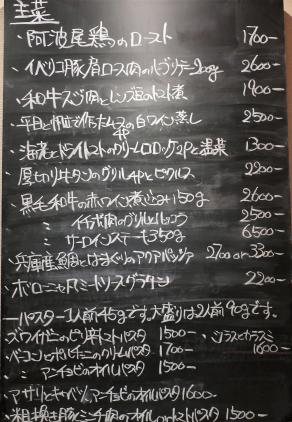 主菜
・阿波尾鶏のロースト 1700-
・イベリコ豚肩ロース肉の 200g 2600-
・和牛スジ肉とレンズ豆のトマト煮 1900-
の白ワイン蒸し 2500-
・海老とドライトマトのクリームコロッケ2Pと温菜 1300-
・厚切り牛タンのグリル4Pとピクルス 2200-
・黒毛和牛の赤ワイン煮込み150g 2600-
〃 イチボ肉のグリル 2500-
〃 サーロインステーキ350g 6500-
・兵庫産鯛とはまぐりのアクアパッツァ 2700 or 3300-
・ボロニャ風ミートソースグラタン 2200-
ーパスター1人前45gです。大盛りは2人前90gです。
・ズワイガニのピリ辛トマトパスタ 1500-
・シラスとカラスミ 1600-
・ベーコンとポルチーニのクリームパスタ 1700-
・〃 アンチョビのオイルパスタ 1500-
・アサリとキャベツ、アンチョビのオイルパスタ 1600-
・粗挽き豚ミンチ肉のオイルorトマトパスタ 1500-